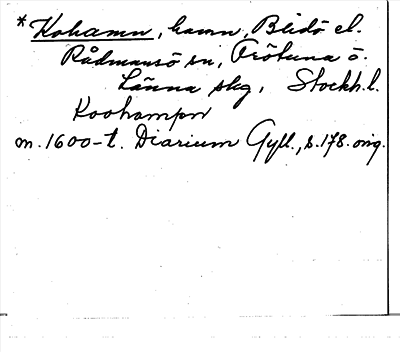 *Kohamn, hamn, Blidö el.
Rådmansö sn, Frötuna o.
Länna skg, Stockh. l.
Koohampn
m. 1600-t. Diarium Gyll., s. 178. orig.